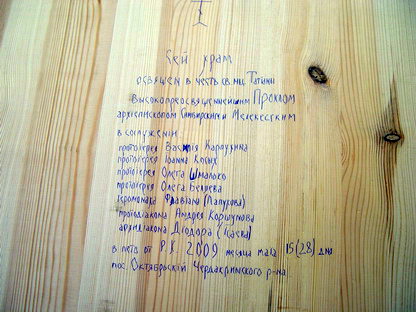 Сей храм
освящен в честь св. мц. Татианы
Высокопреосвященнейшим Проклом
архиепископом Симбирским и Мелекесским
в сослужении
протоиерея Василия
протоиерея Іоанна Косых
протоиерея Олега Шмалько
протоиерея Олега Беляева
иеромонаха Фавіана (Лапухова)
протодіакона Андрея Коршунова
архидіакона Діодора (Исаева)
в лето от Р.Х. 2009 месяца мая 15 (28) дня
пос. Октябрьский Чердаклинского р-на